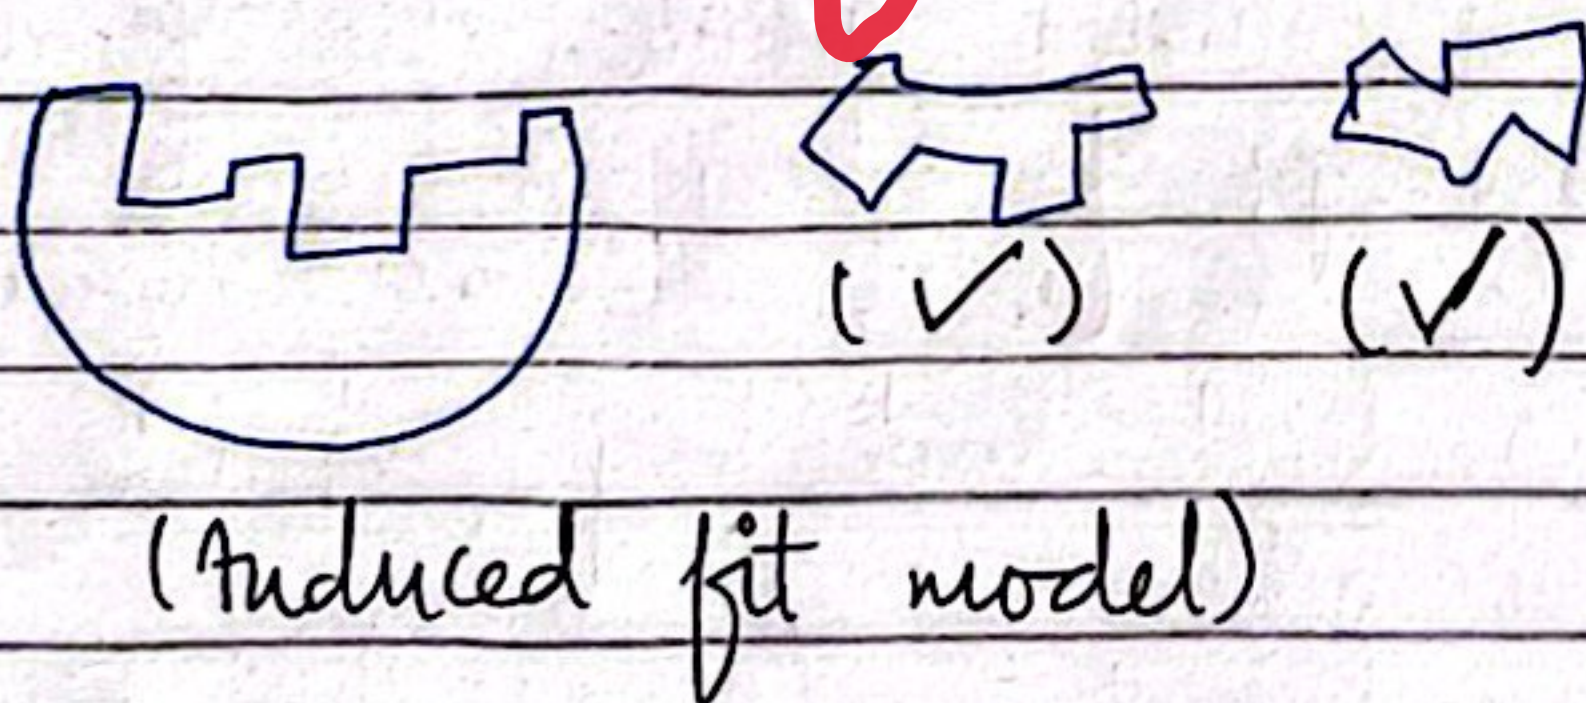 (✓) (✓)
(Induced fit model)